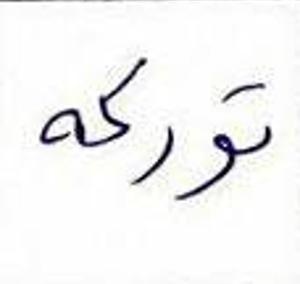 تورکه